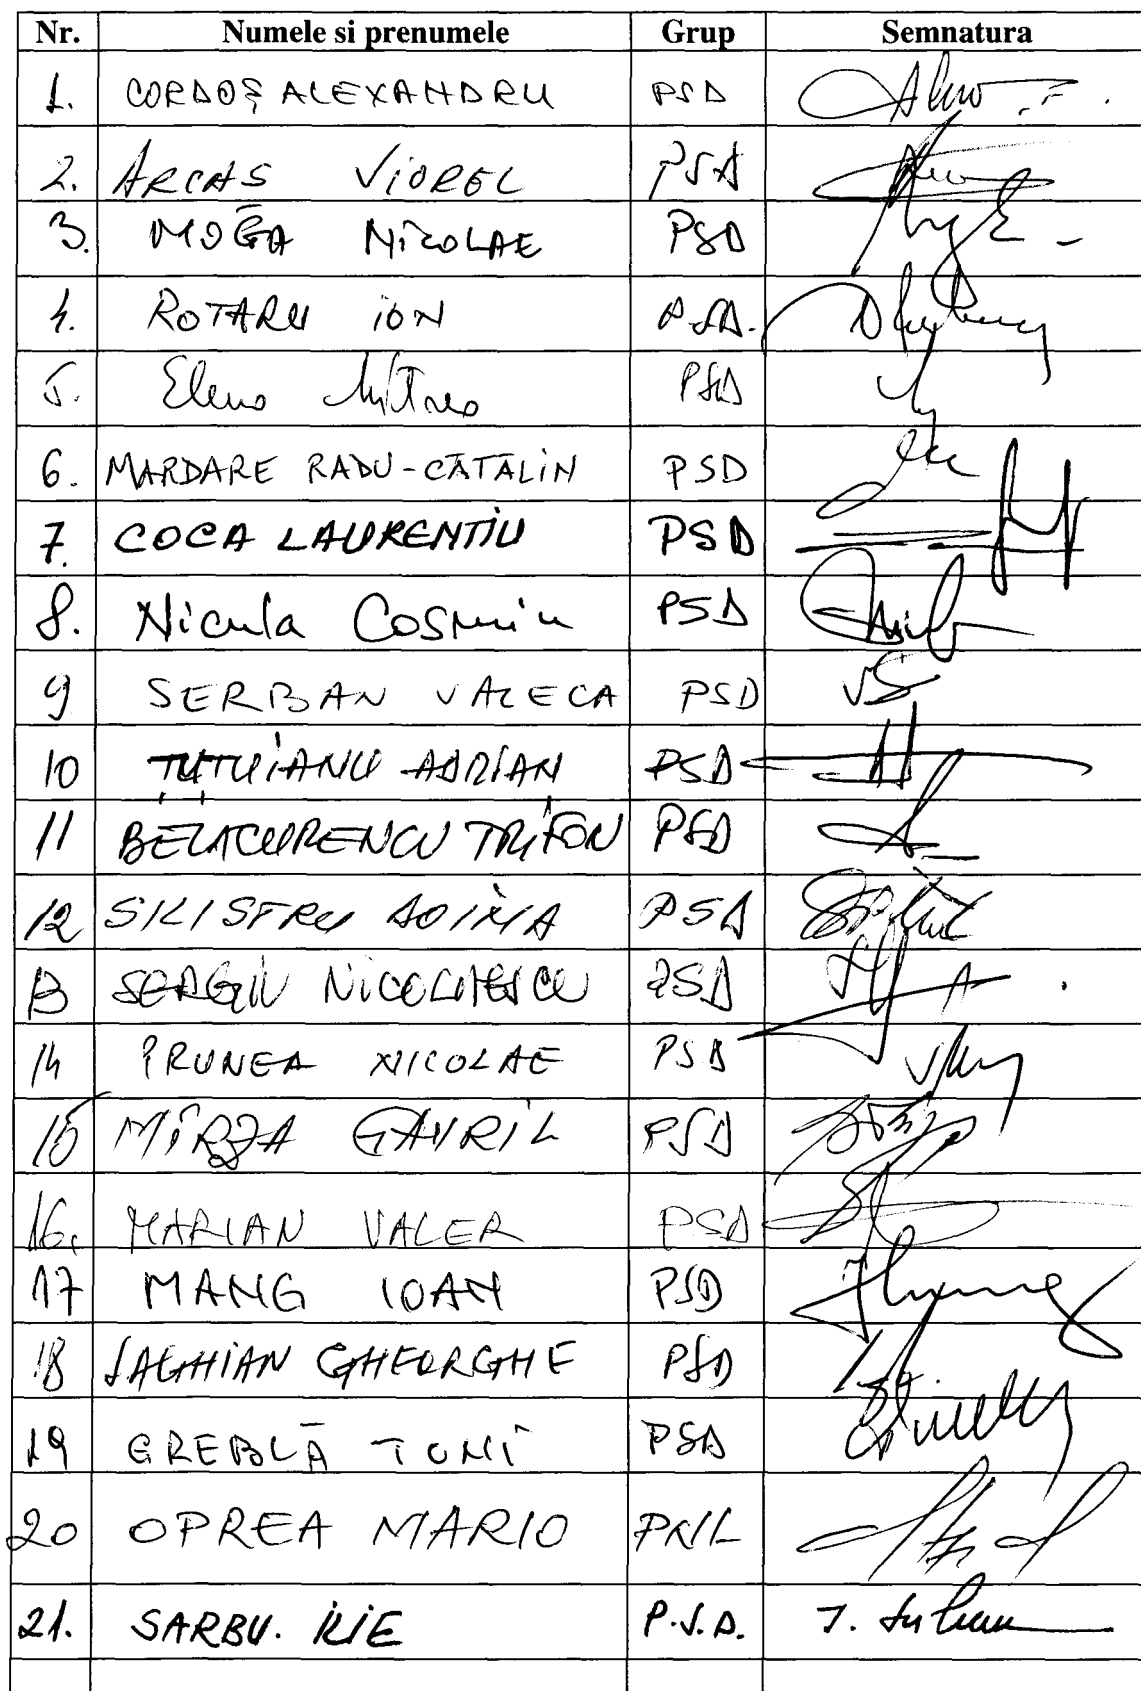 Nr. Numele si prenumele Grup Semnatura
1. CORDOȘ ALEXANDRU PSD
2. ARCAS VIOREL PSD
3. MOGA NICOLAE PSD
4. ROTARU ION P.S.D.
5. Elena PSD
6. MARDARE RADU-CĂTĂLIN PSD
7. COCA LAURENTIU PSD
8. Nicula Cosmin PSD
9 SERBAN VALECA PSD VS
10 ȚUȚUIANU ADRIAN PSD
11 BELACURENCU TRIFON PSD
12 SILISTRU DOINA PSD
13 SERGIU NICOLAESCU PSD
14 PRUNEA NICOLAE PSD
15 MÎRZA GAVRIL PSD
16. MARIAN VALER PSD
17 MANG IOAN PSD
18 SAGHIAN GHEORGHE PSD
19 GREBLĂ TONI PSD
20 OPREA MARIO PNL
21. SARBU. ILIE P.S.D.